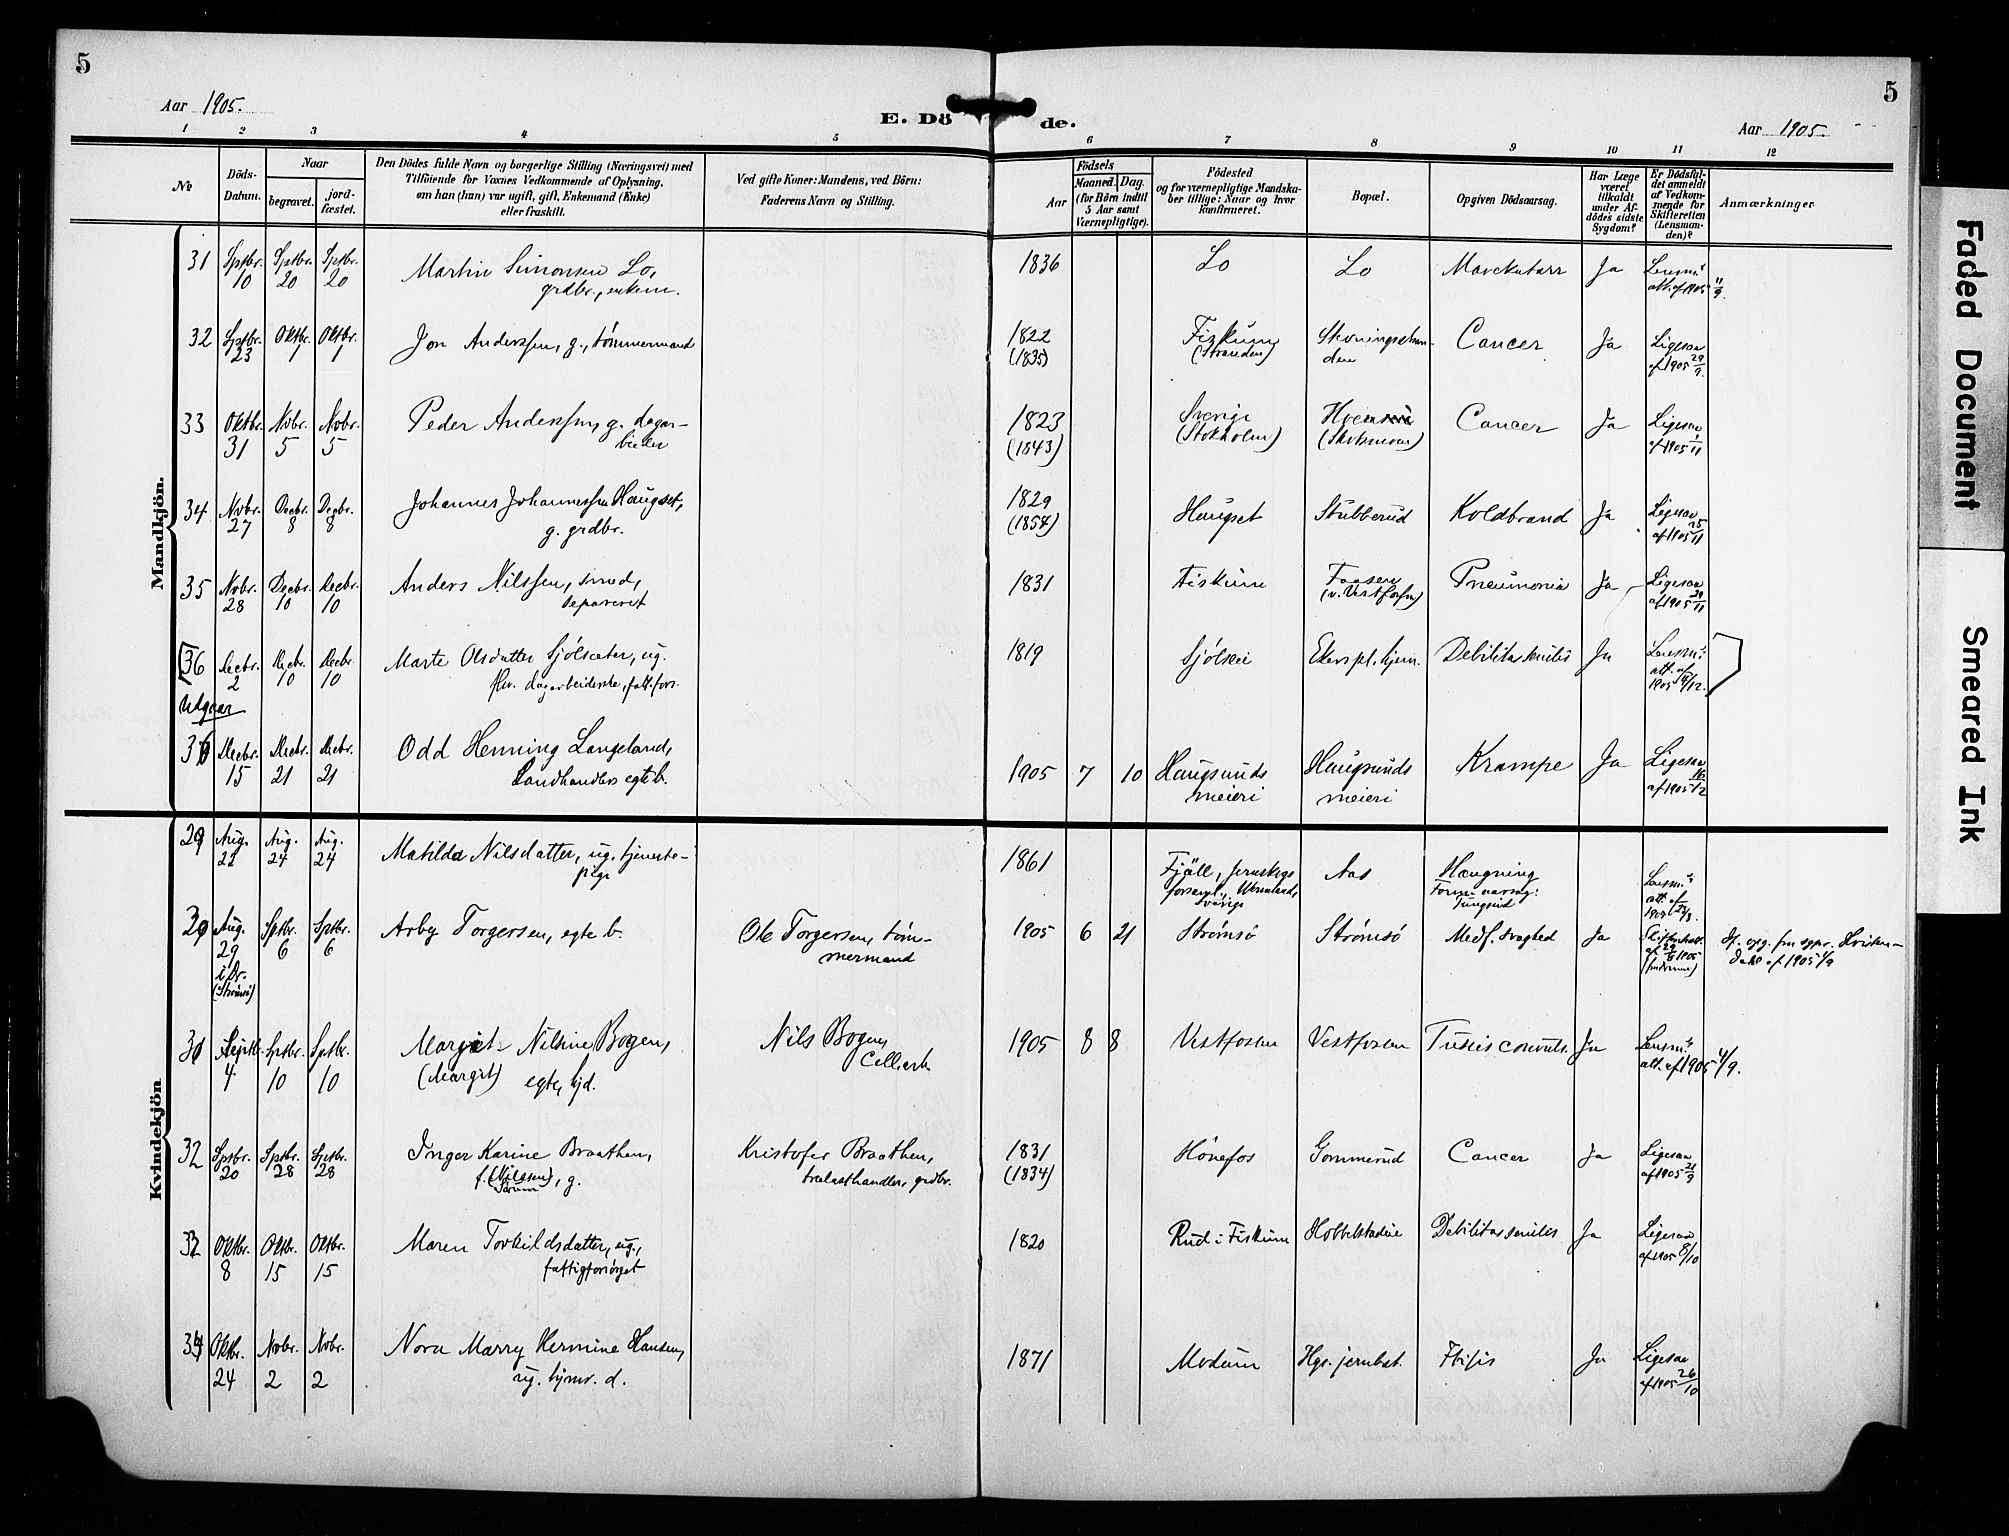 5
5
Aar 1905.
E. Dö de.
Aar 1905.
1 2 3 4 5 6 7 8 9 10 11 12
No
Döds-
Datum.
Naar
begravet.
jord-
fæstet.
Den Dödes fulde Navn og borgerlige Stilling (Næringsvei) med
Tilföiende for Voxnes Vedkommende af Oplysning,
om han (hun) var ugift, gift, Enkemand (Enke)
eller fraskilt.
Ved gifte Koner: Mandens, ved Börn:
Faderens Navn og Stilling.
Födsels
Aar
Maaned.
Dag.
(for Börn indtil
5 Aar samt
Værnepligtige).
Födested
og for værnepligtige Mandska-
ber tillige: Naar og hvor
konfirmeret.
Bopæl.
Opgiven Dödsaarsag.
Har Læge
været
tilkaldt
under Af-
dödes sidste
Sygdom?
Er Dödsfal-
det anmeldt
af Vedkom-
mende for
Skifteretten
(Lensman-
den)?
Anmærkninger
Mandkjön.
31 Sptbr. 10 Sptbr. 20 Sptbr. 20
Martin Simonsen Lo,
grdbr., enkem.
1836 Lo Lo Mavekatarr Ja Lensm.s
att. af 1905 11/9.
32 Sptbr. 23 Oktbr. 1 Oktbr. 1
Jon Anderssen, g., tømmermand
1822
(1835)
Fiskum
(Stranden)
den
Cancer Ja Ligesaa
af 1905 29/9.
33 Oktbr. 31 Nvbr. 5 Nvbr. 5
Peder Anderssen, g. dagar-
beider
1823
(1843)
Sverige
(Stokholm)
Cancer Ja Ligesaa
af 1905 1/11
34 Nvbr. 27 Decbr. 8 Decbr. 8
Johannes Johannessen Haugset,
g. grdbr.
1829
(1854)
Haugset Stubberud Koldbrand Ja Ligesaa
af 1905
35 Nvbr. 28 Decbr. 10 Decbr. 10
Anders Nilssen, smed,
separeret
1831 Fiskum Faasen
(v. Vestfossen)
Pneumonia Ja Ligesaa
af 1905 29/11
36 Decbr. 2 Decbr. 10 Decbr. 10
Utgaar
Marte Olsdatter Sjölseter, ug.
fhv. dagarbeiderske, fatt. fors.
1819 Ekers pl. hjem. Debilitas senilis Ja Lensm.s
att. af
1905
36 Decbr. 15 Decbr. 21 Decbr. 21
Odd Henning Langeland,
Landhandlers egte b.
1905 7 10 Haugsunds
meieri
Haugsunds
meieri
Krampe Ja Ligesaa
af 1905 16/12
Kvindekjön
29 Aug. 22 Aug. 24 Aug. 24
Matilda Nilsdatter, ug. tjeneste-
pige
1861 Fjäll,
Sverige
Aas Hængning
Lensm.s
att. af
30 Aug. 29
i Dr.
(Strømsø)
Sptbr. 6 Sptbr. 6
Arby Torgersen, egte b.
Ole Torgersen, tøm-
mermand
1905 6 21 Strømsø Strømsø Medf. svaghed Ja
af 1905
31 Septbr. 4 Sptbr. 10 Sptbr. 10
Margit Nilsine Bogen,
(Margit) egte, hjd.
Nils Bogen,
Cellarb.
1905 8 8 Vestfossen Vestfossen Tussis convuls. Ja Lensm.s
att. af 1905 4/9.
32 Sptbr. 20 Sptbr. 28 Sptbr. 28
Inger Karine Braathen,
f. (Nilssen), g.
Kristofer Braathen,
trælasthandler, grdbr.
1831
(1834)
Hönefos Gommerud Cancer Ja Ligesaa
af 1905 21/9
33 Oktbr. 8 Oktbr. 15 Oktbr. 15
Maren Torkildsdatter, ug.,
fattigforsörget
1820 Rud i Fiskum Debilitas senilis Ja Ligesaa
af 1905 9/10
34 Oktbr. 24 Nvbr. 2 Nvbr. 2
Nora Marry Hermine Hansen,
ug. hjmv. d.
1871 Modum Hgs. jernbst. Ftisis Ja Ligesaa
af 1905 26/10
Faded Document
Smeared Ink